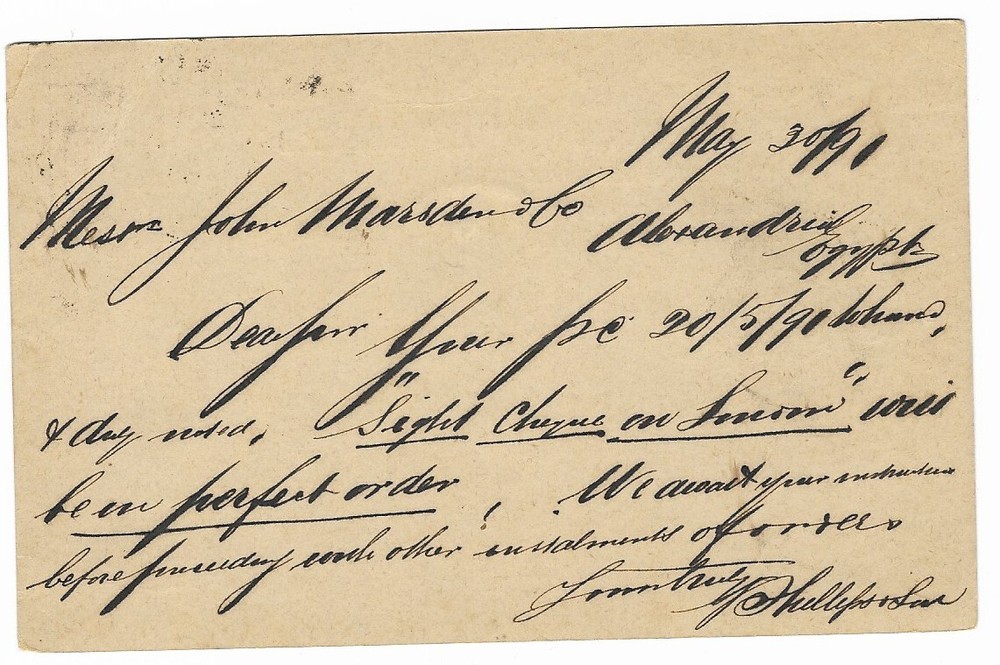 May 30/90
Messrs John Marsden & Co
Alexandria
Egypt
Dear Sirs Your p c 20/5/90 to hand,
& duly noted. "Sight Cheque on London" will
be in perfect order. We await your instructions
before proceeding with other instalments of orders
Yours truly
Phillips & Son